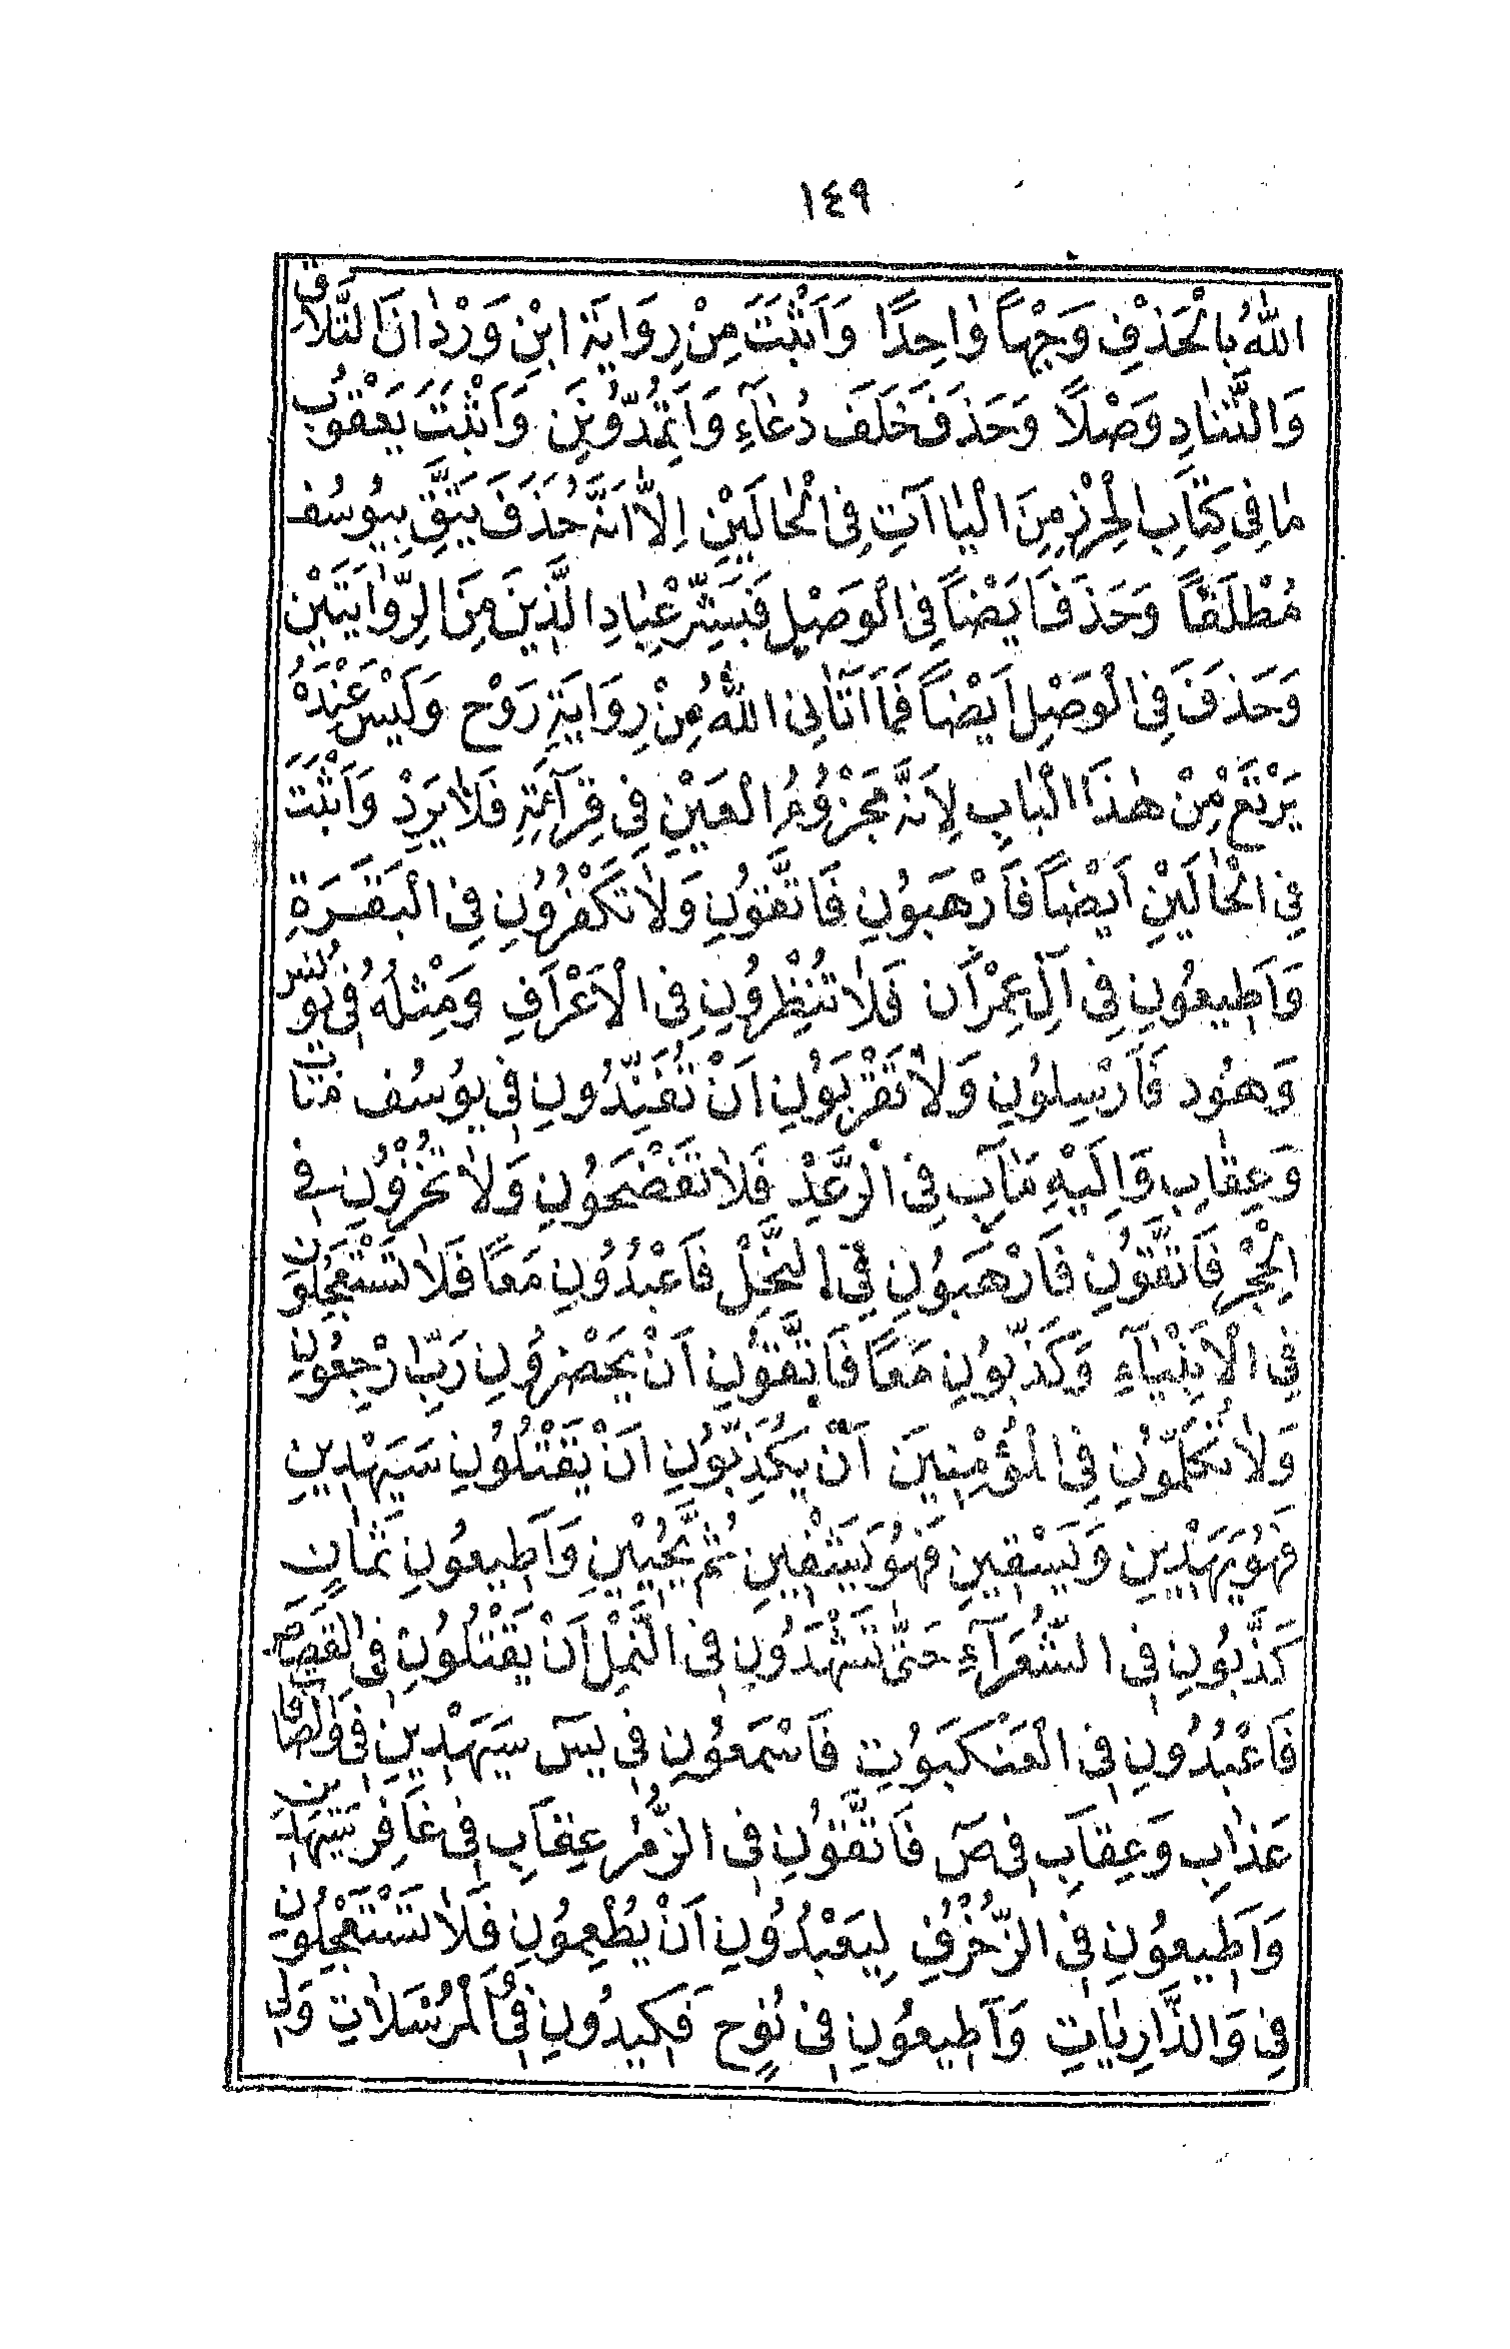 ١٤٩
اللّٰهُ بِالْحَذْفِ وَجْهاً وٰاحِدًا وَاَثْبَتَ مِنْ رِوَايَة ابْنِ وَرْدٰانَ التَّلاَقِ
وَالتَّنٰادِ وَصْلًا وَحَذَفَ خَلَفَ دُعَآءِ وَاَتُمِدُّونَنِ وَاَثْبَتَ يَعْقُوبُ
مٰا فِي كِتَابِ الْحِرْزِ مِنَ الْيٰاآتِ فِي الْحٰالَيْنِ اِلاّٰ اَنَّهُ حَذَفَ يَتَّقِ بِيُوسُف
مُطْلَقاً وَحَذَفَ اَيْضاً فِي الْوَصْلِ فَبَشِّرْ عِبٰادِ الَّذِينَ مِنَ الرِّوٰايَتَيْنِ
وَحَذَفَ فِي الْوَصْلِ اَيْضاً فَمَا اَتٰانِىَ اللّٰهُ مِنْ رِوَايَةِ رَوْح وَلَيْسَ عِنْدَهُ
يَرْتَعْ مِنْ هٰذَا الْبٰابِ لِاَنَّهُ مَجْزُومُ الْعَيْنِ فِي قِرَآئَتِهِ فَلاٰ يَرِدْ وَاَثْبَتَ
فِي الْحٰالَيْنِ اَيْضاً فَارْهَبُونِ فَاتَّقُونِ وَلاٰ تَكْفُرُونِ فِي الْبَقَرَةِ
وَاَطِيعُونِ فِي آلِ عِمْرَان فَلاٰ تُنْظِرُونِ فِي الْاَعْرَافِ وَمِثْلُهُ فِي يُونُس
وَهُود فَاَرْسِلُونِ وَلاٰ تَقْرَبُونِ اَنْ تُفَنِّدُونِ فِي يُوسُف مَتٰابِ
وَعِقٰابِ وَاِلَيْهِ مَاٰبِ فِي الرَّعْدِ فَلاٰ تَفْضَحُونِ وَلاٰ تُخْزُونِ فِي
الْحِجْرِ فَاتَّقُونِ فَارْهَبُونِ فِي النَّحْلِ فَاعْبُدُونِ مَعًا فَلاٰ تَسْتَعْجِلُونِ
فِي الْاَنْبِيَآءِ وَكَذَّبُونِ مَعًا فَاتَّقُونِ اَنْ يَحْضُرُونِ رَبِّ ارْجِعُونِ
وَلاٰ تُكَلِّمُونِ فِي الْمُؤْمِنِينَ اَنْ يُكَذِّبُونِ اَنْ يَقْتُلُونِ سَيَهْدِينِ
فَهُوَ يَهْدِينِ وَيَسْقِينِ فَهُوَ يَشْفِينِ ثُمَّ يُحْيِينِ وَاَطِيعُونِ ثَمٰانٍ
كَذَّبُونِ فِي الشُّعَرَآءِ حَتّٰى تَشْهَدُونِ فِي النَّمْلِ اَنْ يَقْتُلُونِ فِي الْقَصَص
فَاعْبُدُونِ فِي الْعَنْكَبُوتِ فَاسْمَعُونِ فِي يسٓ سَيَهْدِينِ فِي وَالصَّافَّات
عَذٰابِ وَعِقَابِ فِي صٓ فَاتَّقُونِ فِي الزُّمَرِ عِقَابِ فِي غَافِرِ سَيَهْدِينِ
وَاَطِيعُونِ فِي الزُّخْرُفِ لِيَعْبُدُونِ اَنْ يُطْعِمُونِ فَلاٰ تَسْتَعْجِلُونِ
فِي وَالذَّارِيٰاتِ وَاَطِيعُونِ فِي نُوحٍ فَكِيدُونِ فِي الْمُرْسَلاٰتِ وَلِىَ